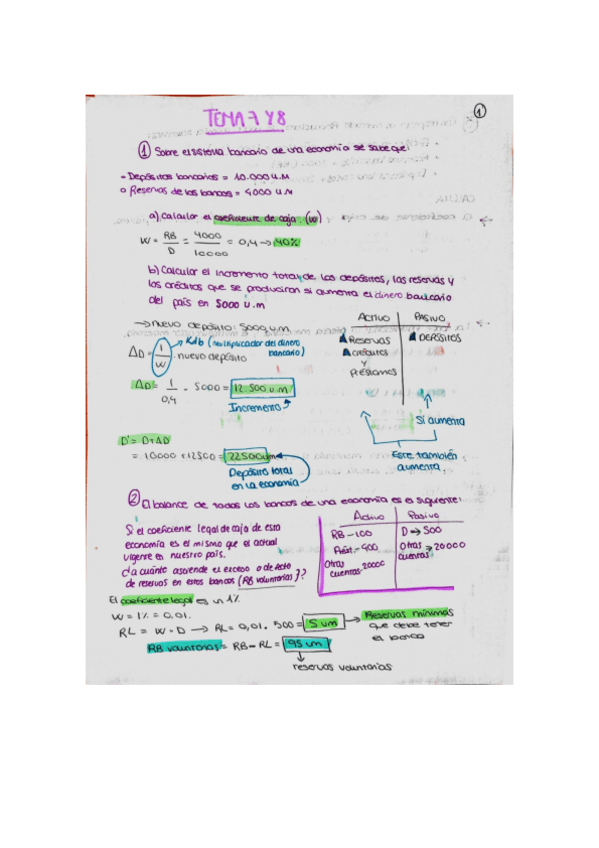 1
TEMA 7 Y 8
1 Sobre el sistema bancario de una economía se sabe que:
- Depósitos bancarios = 10.000 u.m
o Reservas de los bancos = 4000 u.m
a) Calcular el coeficiente de caja (w)
W = RB/D = 4000/10000 = 0,4 → 40%
b) Calcular el incremento total de los depósitos, las reservas y
los créditos que se producirán si aumenta el dinero bancario
del país en 5000 u.m
→ nuevo depósito: 5000 u.m
ΔD = 1/W · nuevo depósito
(multiplicador del dinero
bancario)
ΔD = 1/0,4 · 5000 = 12.500 u.m
Incremento
D' = D+ΔD
= 10000 + 12500 = 22500um
Depósito total
en la economía
ACTIVO PASIVO
▲ Reservas ▲ DEPÓSITOS
▲ créditos
y
préstamos
Si aumenta
Este también
aumenta
2 El balance de todos los bancos de una economía es el siguiente:
Si el coeficiente legal de caja de esta
economía es el mismo que el actual
vigente en nuestro país.
¿a cuánto asciende el exceso o defecto
de reservas en estos bancos (RB voluntarias)?
Activo Pasivo
RB - 100 D → 500
Prést. - 400 Otras → 20000
cuentas
Otras
cuentas - 20000
El coeficiente legal es un 1%
W = 1% = 0,01.
RL = W · D → RL = 0,01 · 500 = 5 um → Reservas mínimas
que debe tener
el banco
RB voluntarias = RB - RL = 95 um
reservas voluntarias